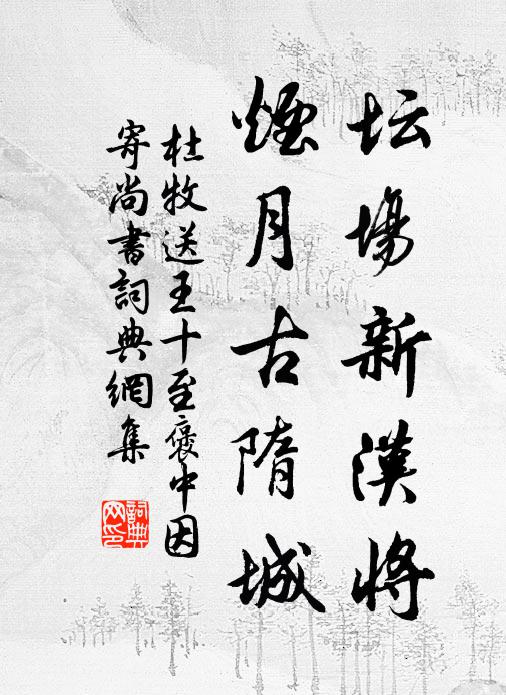 坛場新漢將
煙月古隋城
杜牧送王十至褒中因
寄尚書詞典網集
詞典
网印